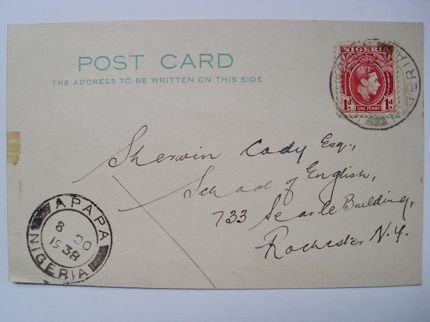 POST CARD
THE ADDRESS TO BE WRITTEN ON THIS SIDE
NIGERIA
1D
1D
ONE PENNY
Sherwin Cody Esq.,
School of English,
733 Searle Building,
Rochester N.Y.
APAPA
8 OC
1938
NIGERIA